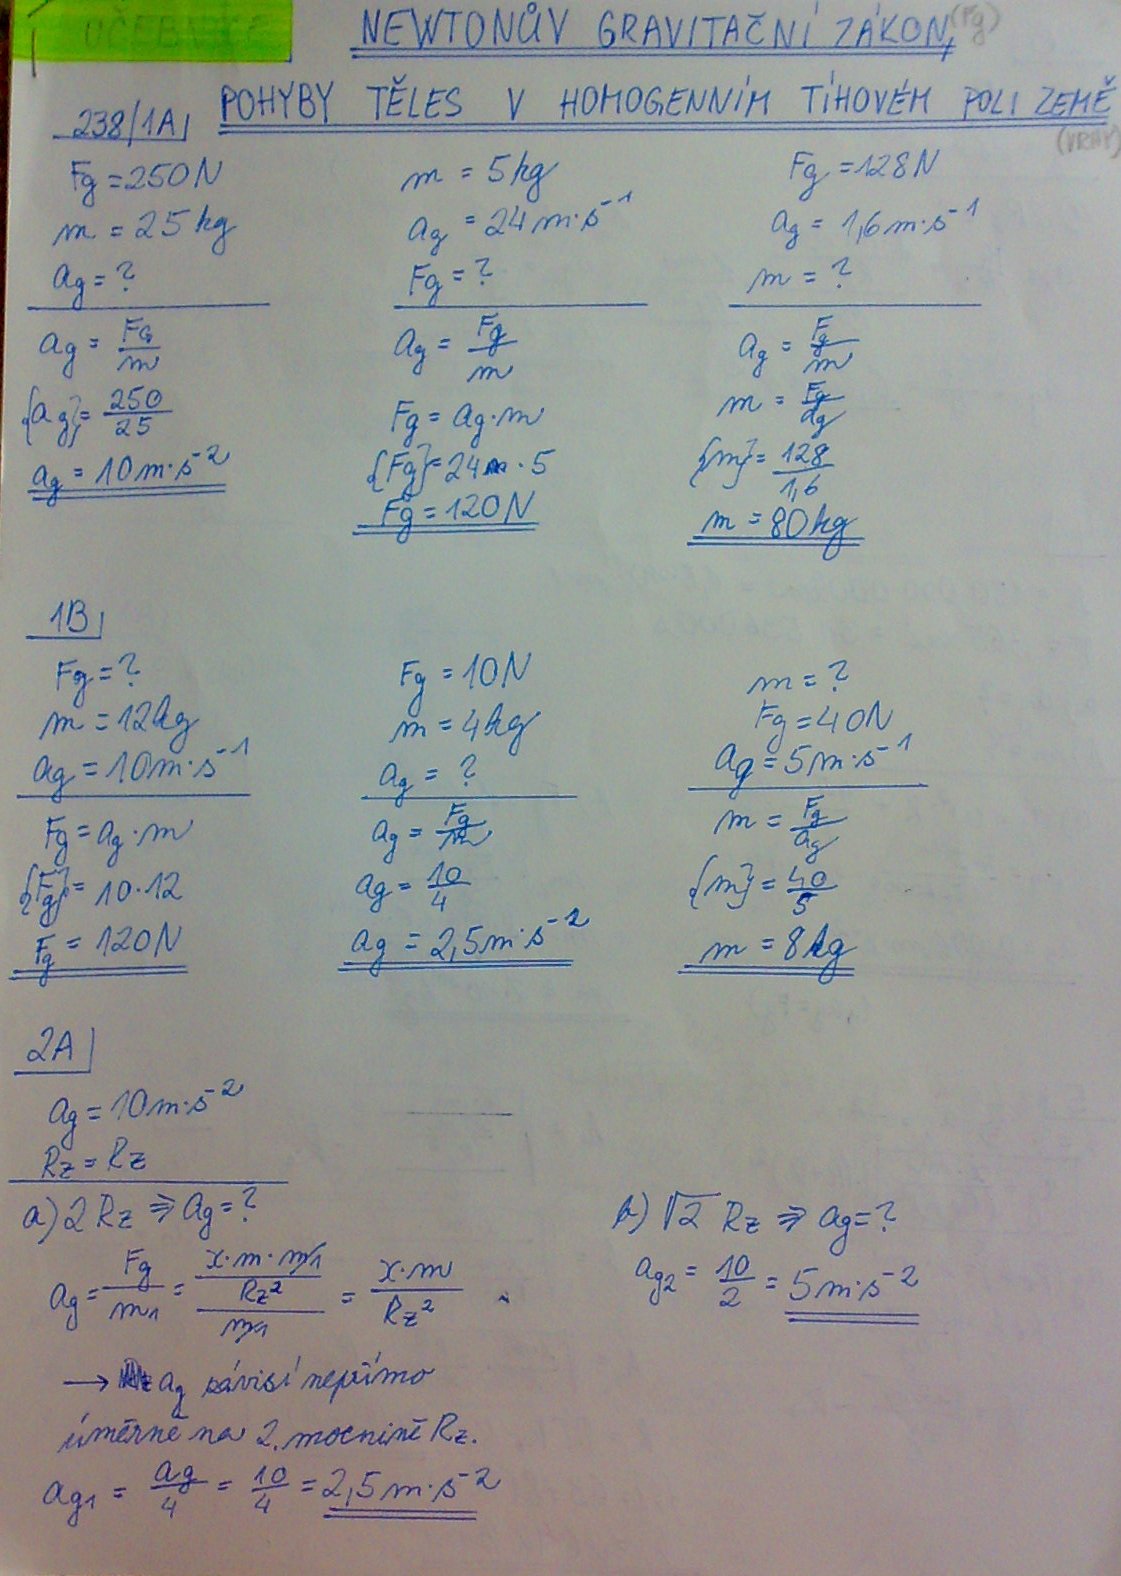 UČEBNICE
NEWTONŮV GRAVITAČNÍ ZÁKON, (Fg)
POHYBY TĚLES V HOMOGENNÍM TÍHOVÉM POLI ZEMĚ
(VRHY)
238/1A
Fg = 250N
m = 25kg
ag = ?
ag = Fg/m
{ag} = 250/25
ag = 10m·s⁻²
m = 5kg
ag = 24m·s⁻¹
Fg = ?
ag = Fg/m
Fg = ag·m
{Fg} = 24·5
Fg = 120N
Fg = 128N
ag = 1,6m·s⁻¹
m = ?
ag = Fg/m
m = Fg/ag
{m} = 128/1,6
m = 80kg
1B
Fg = ?
m = 12kg
ag = 10m·s⁻¹
Fg = ag·m
{Fg} = 10·12
Fg = 120N
Fg = 10N
m = 4kg
ag = ?
ag = Fg/m
ag = 10/4
ag = 2,5m·s⁻²
m = ?
Fg = 40N
ag = 5m·s⁻¹
m = Fg/ag
{m} = 40/5
m = 8kg
2A
ag = 10m·s⁻²
Rz = Rz
a) 2Rz ⇒ ag = ?
ag = Fg/m₁ = (x·m·m₁/Rz²)/m₁ = x·m/Rz²
→ ag závisí nepřímo
úměrně na 2. mocnině Rz.
ag₁ = ag/4 = 10/4 = 2,5m·s⁻²
b) √2 Rz ⇒ ag = ?
ag₂ = 10/2 = 5m·s⁻²